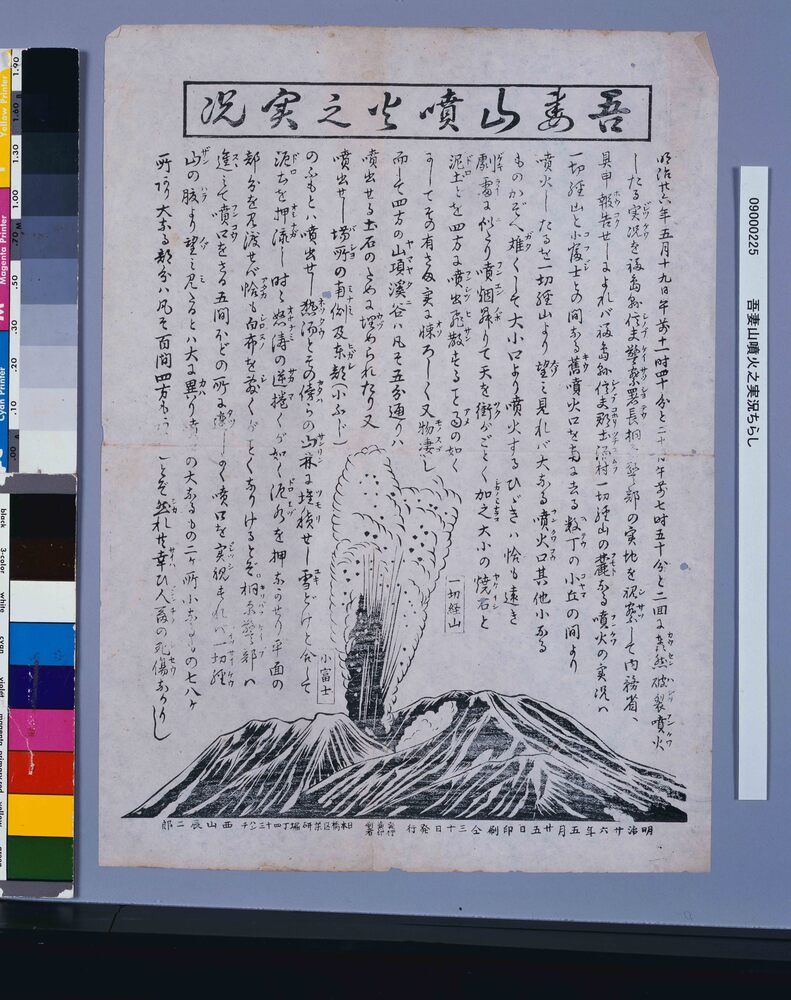 吾妻山噴火之実況
明治廿六年五月十九日午前十一時四十分と二十日午前七時五十分と二回に轟然破裂噴火
したる実況を福島縣信夫警察署長桐 警部の実地を視察して内務省へ
具申報告せしよれバ福島縣信夫郡土湯村一切経山の麓なる噴火の実況ハ
一切経山と小富士との間なる舊噴火口を南に去る数丁の小丘の間より
噴火したるを一切経山より望み見れバ大なる噴火口其他小なる
ものかぞへ難くして大小口より噴火するひゞきハ恰も遠き
劇雷に似たり噴烟昇りて天を衝がごとく加之大小の焼石と
泥土とを四方に噴出飛散する
にしてその有さま実に怖ろしく又物凄し
而して四方の山頂渓谷ハ凡そ五分通りハ
噴出せる土石のために埋められたり又
噴出せし場所の南側及東部(小ふじ)
のふもとハ噴出せし熱湯とその傍らの山林に堆積せし雪どけと合して
泥土を押流し時々怒涛の逆捲くが如し泥水を押ながせり平面の
部分を見渡せバ恰も白布を敷くがごとくなりけるとぞ。桐 警部ハ
進んで噴口をさる五間ほどの所に達し 噴口を実視されバ一切経
山の腹より望み見るとハ大に異り の大なるもの二ヶ所小なるもの七八ヶ
所 大なる部分ハ凡そ百間四方も とぞ然れ共幸ひ人畜の死傷なかりし
一切経山
小富士
明治廿六年五月廿五日印刷仝三十日発行 日本橋区薬研堀丁四十三 西山辰二郎
09000225 吾妻山噴火之実況ちらし
Yellow Printer
Magenta Printer
Cyan Printer
1.90
1.60
1.30
1.00
.70
.50
.30
.20
.10
.00
black
3-color
white
cyan
violet
magenta
primary red
yellow
green